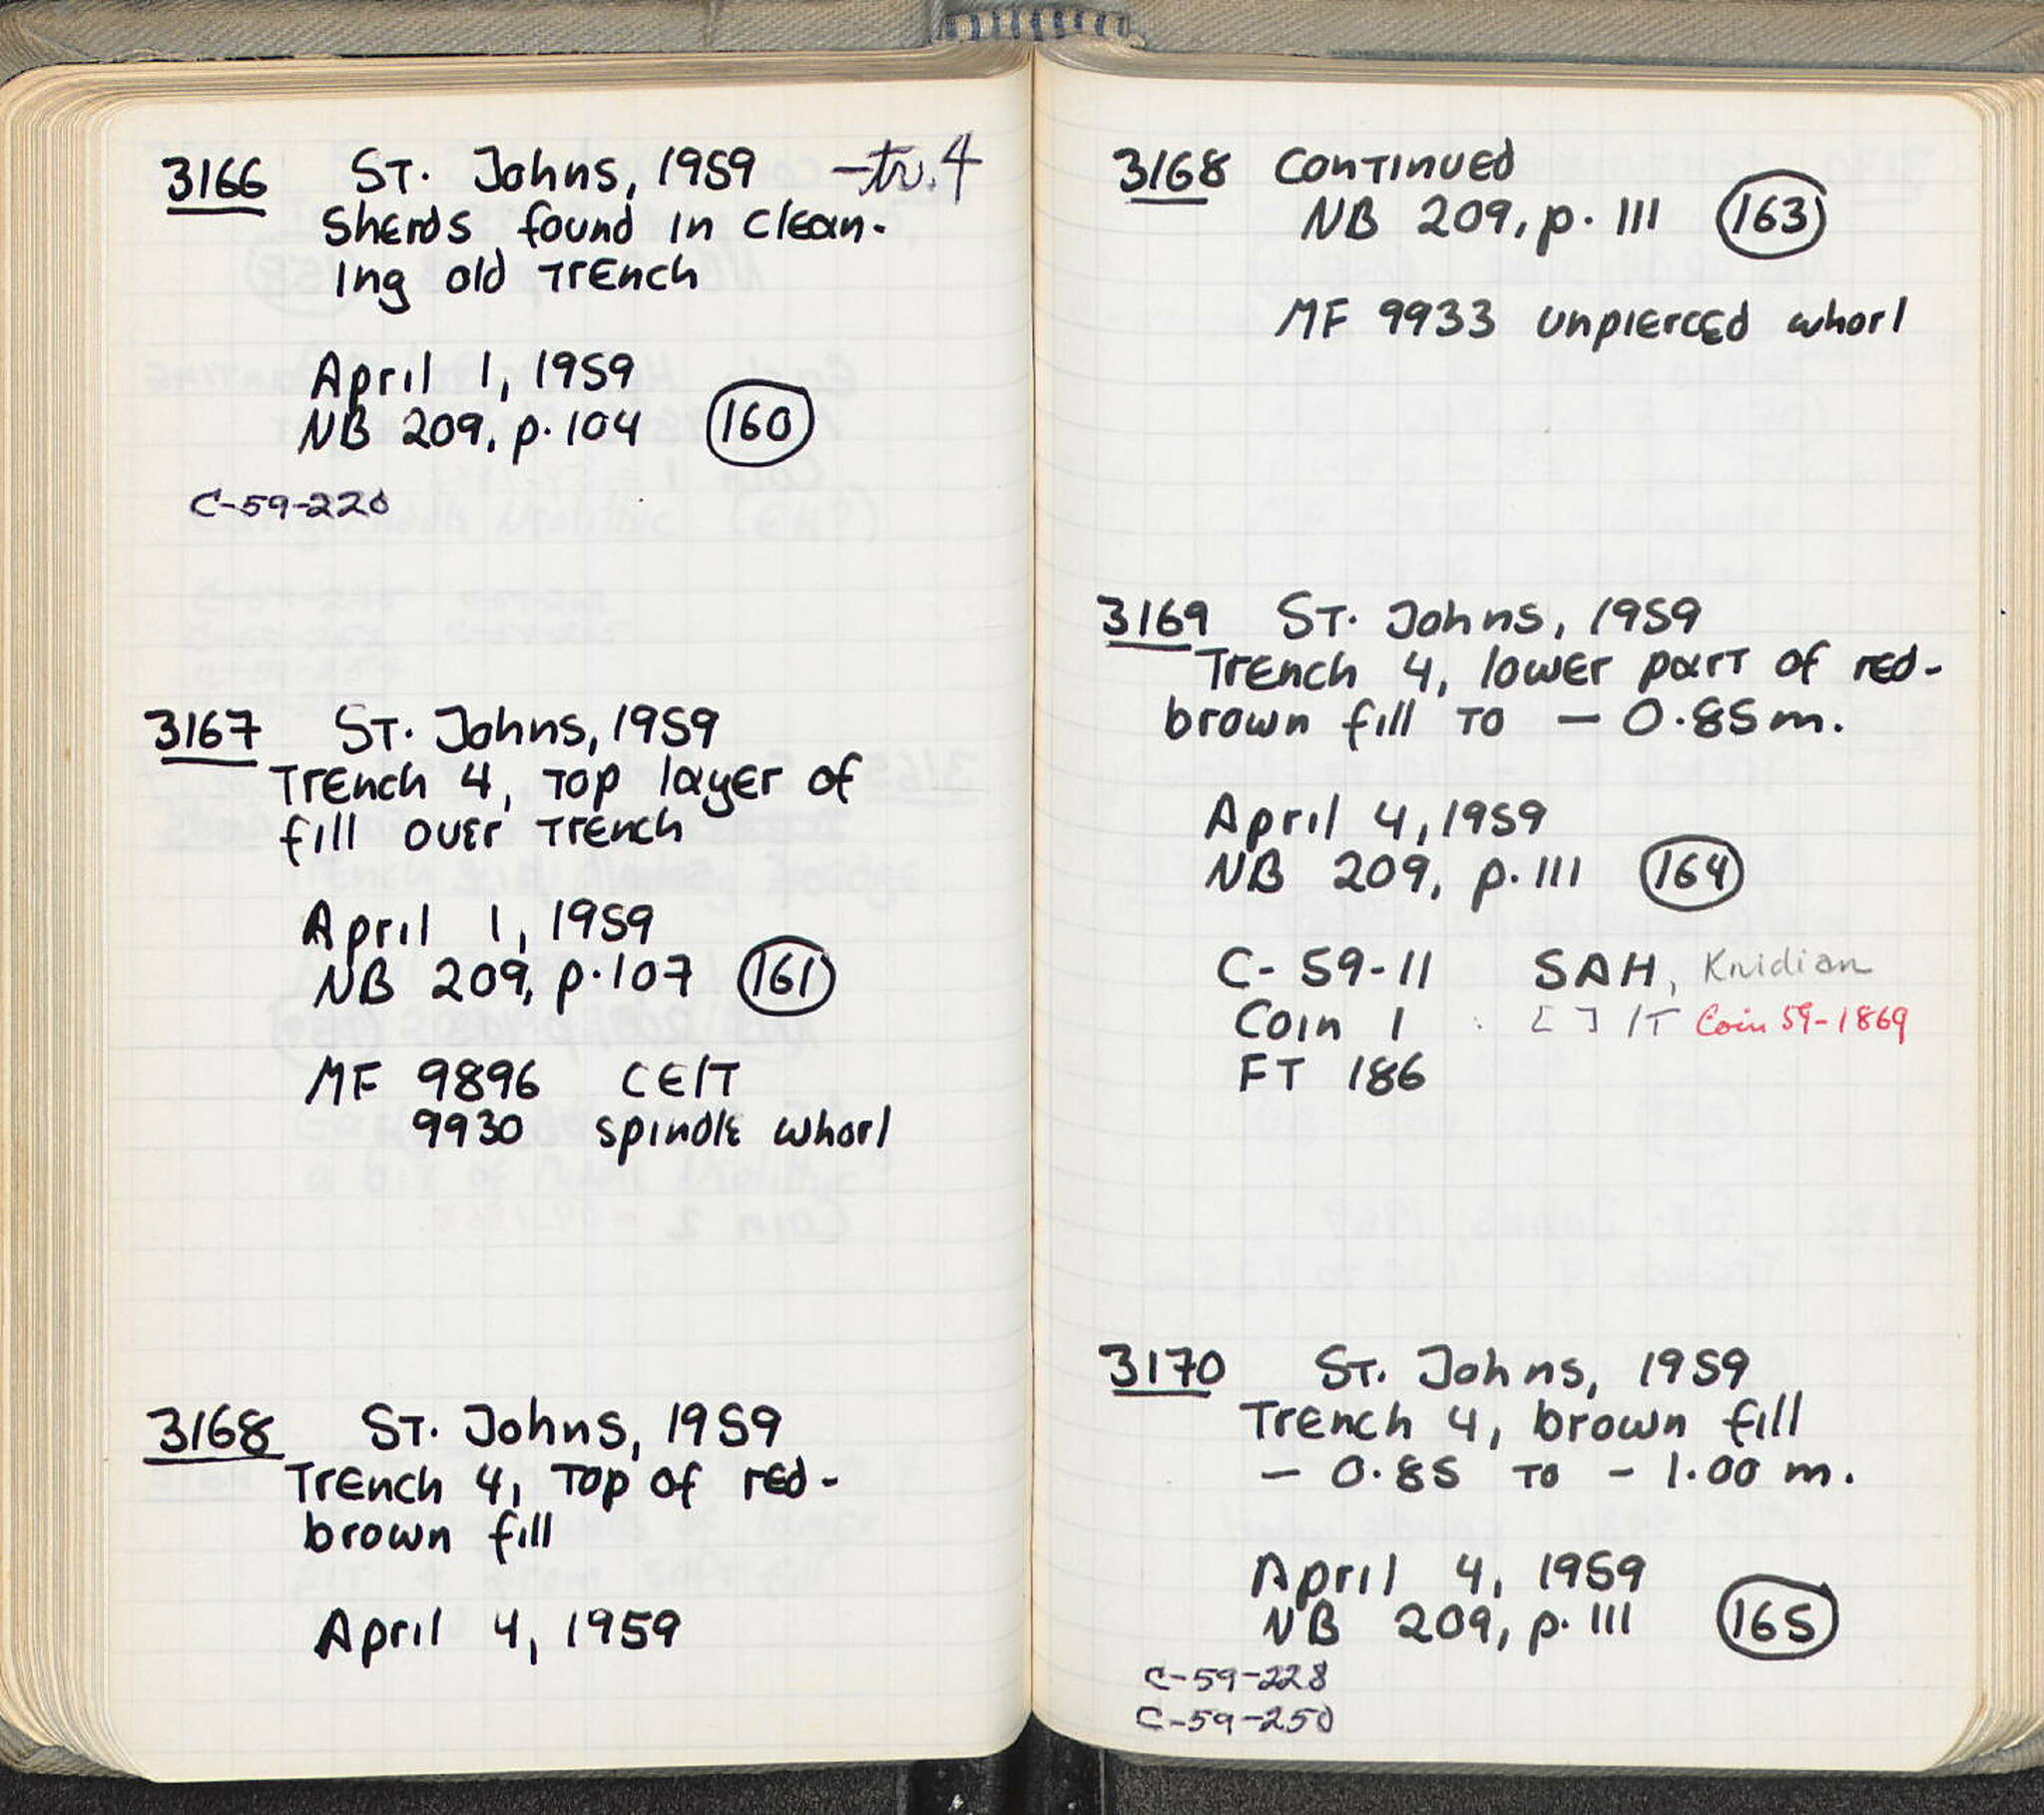 3166 ST. Johns, 1959 -tr. 4
Sherds found in clean-
ing old Trench
April 1, 1959
NB 209, p. 104 160
C-59-220
3167 ST. Johns, 1959
Trench 4, Top layer of
fill over Trench
April 1, 1959
NB 209, p. 107 161
MF 9896 CE/T
9930 spindle whorl
3168 ST. Johns, 1959
Trench 4, Top of red-
brown fill
April 4, 1959
3168 Continued
NB 209, p. 111 163
MF 9933 unpierced whorl
3169 ST. Johns, 1959
Trench 4, lower part of red-
brown fill TO - 0.85 m.
April 4, 1959
NB 209, p. 111 164
C-59-11 SAH, Knidian
Coin 1 [ ] /T Coin 59-1869
FT 186
3170 ST. Johns, 1959
Trench 4, brown fill
- 0.85 TO - 1.00 m.
April 4, 1959
NB 209, p. 111 165
C-59-228
C-59-250